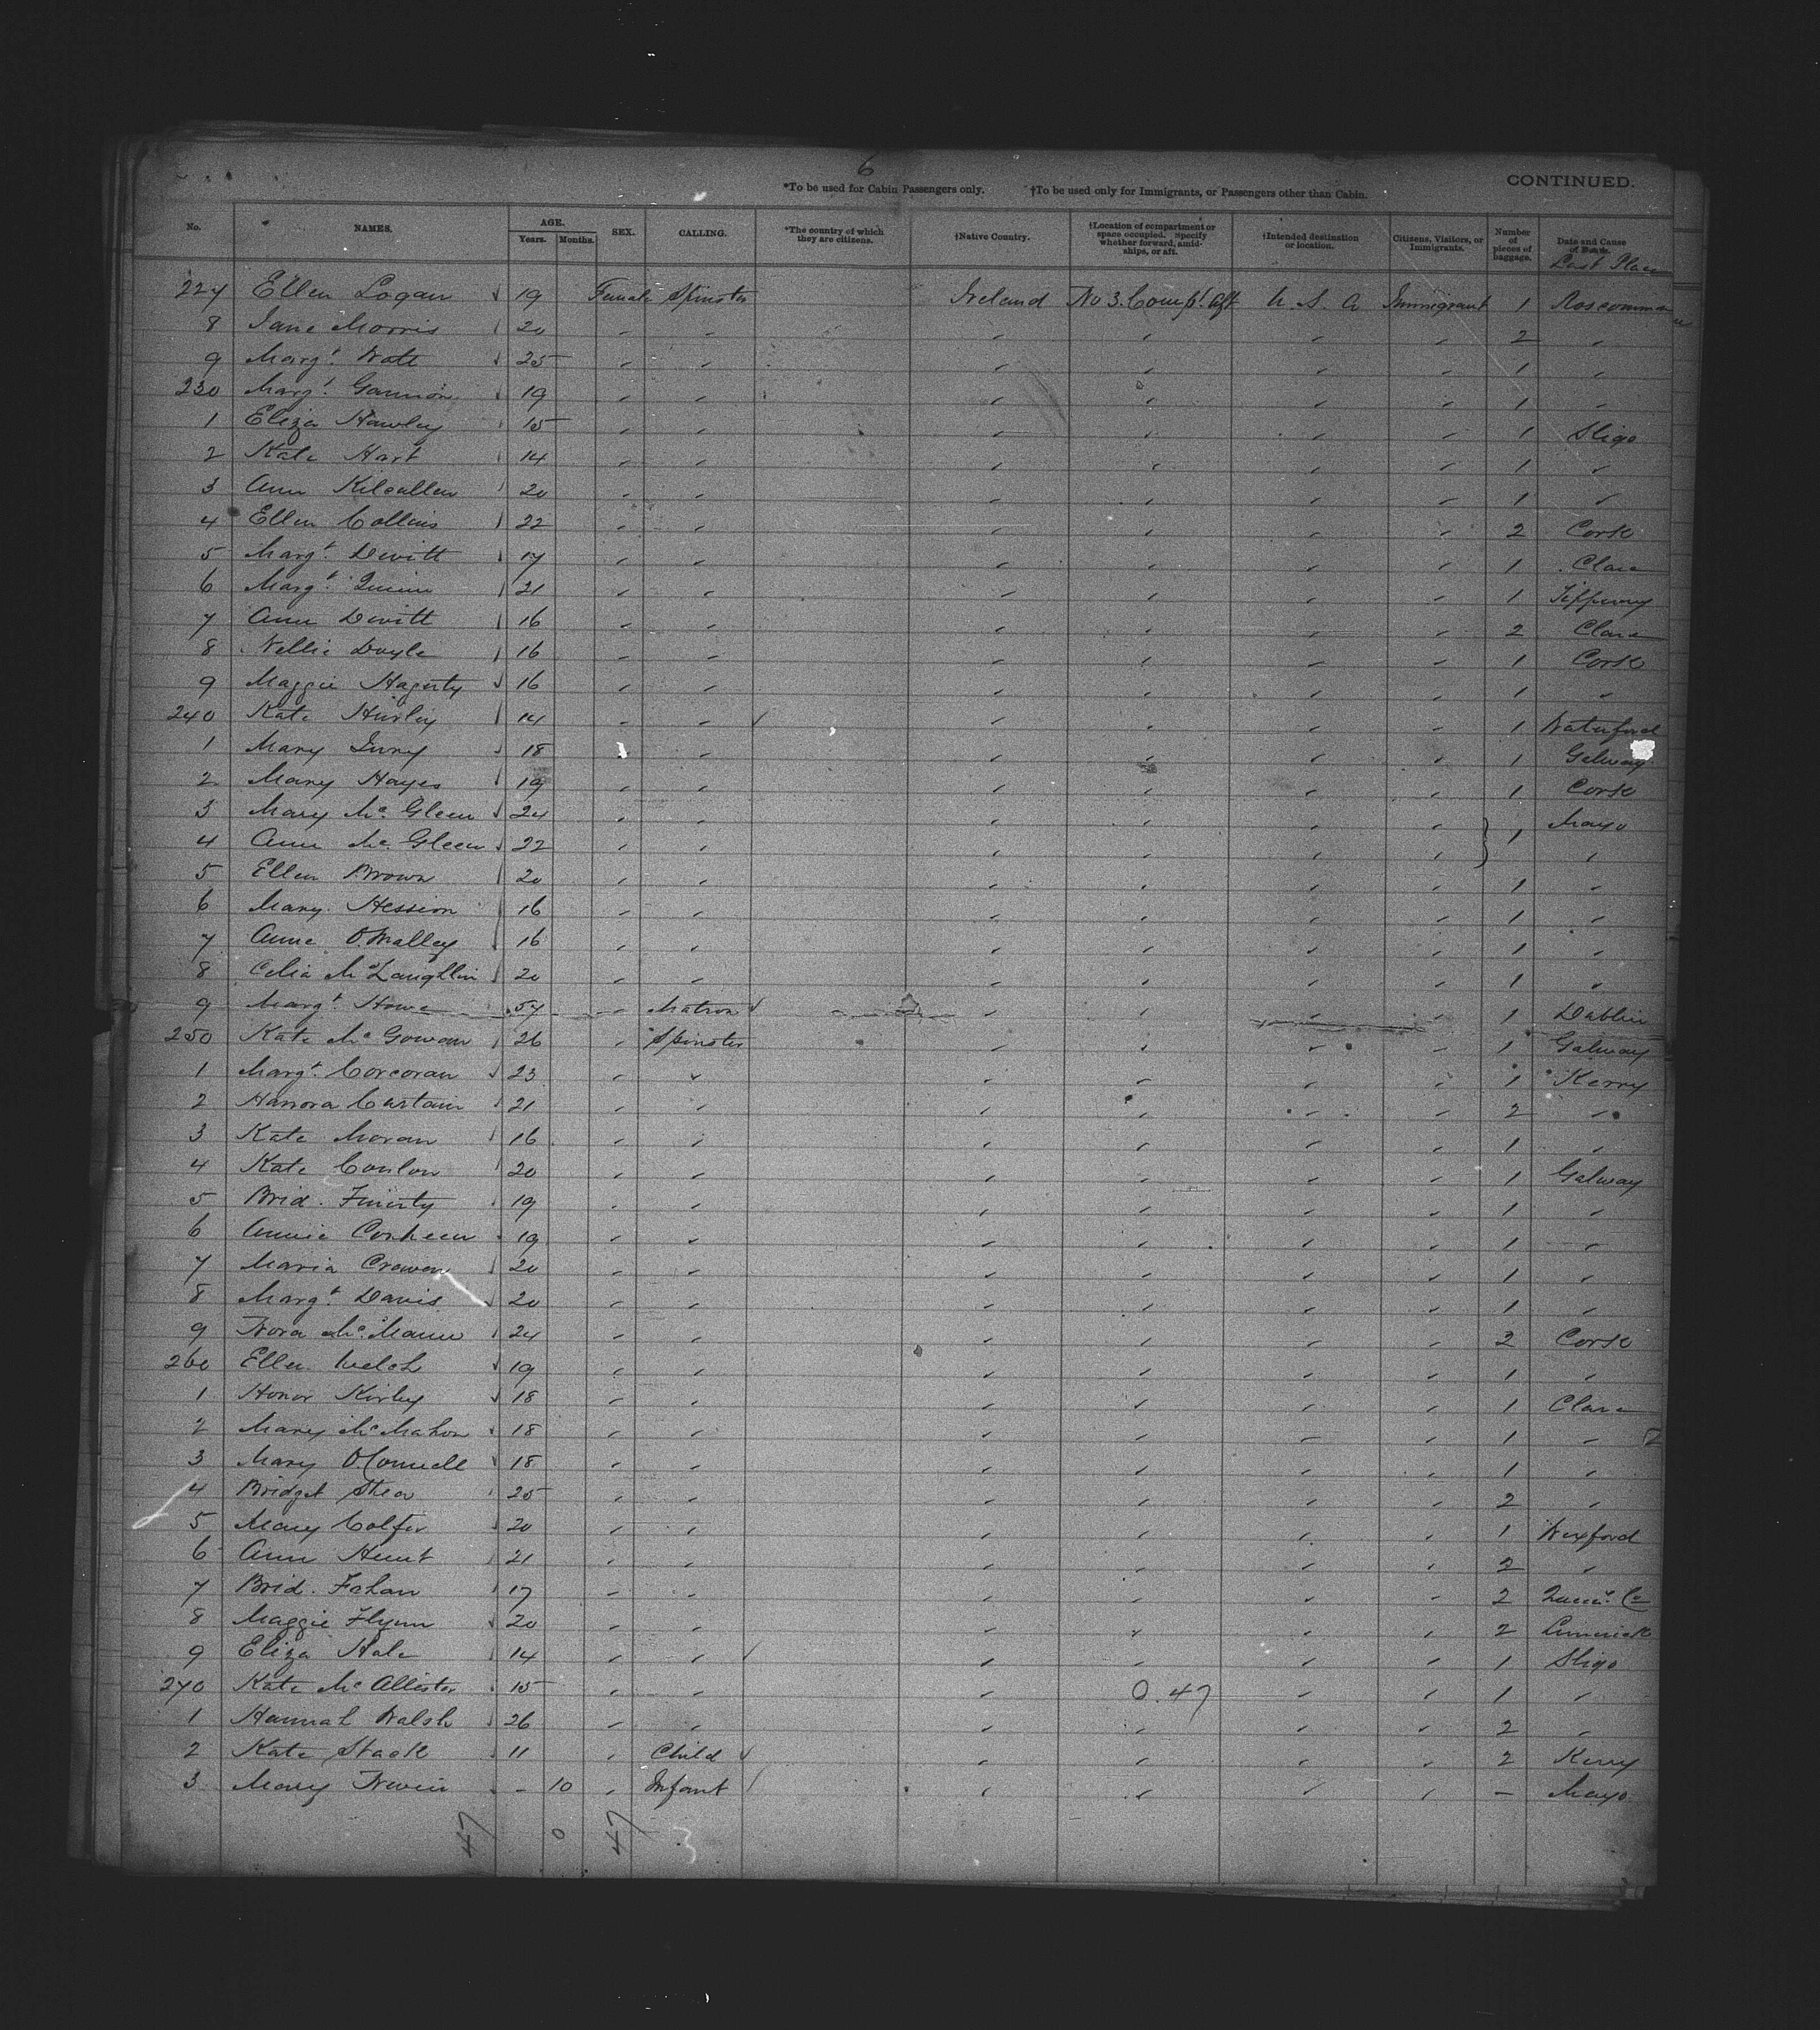 6
*To be used for Cabin Passengers only. †To be used only for Immigrants, or Passengers other than Cabin. CONTINUED.
No. NAMES. AGE. Years. Months. SEX. CALLING. *The country of which they are citizens. †Native Country. †Location of compartment or space occupied. Specify whether forward, amidships, or aft. †Intended destination or location. Citizens, Visitors, or Immigrants. Number of pieces of baggage. Date and Cause of Death. Last Place
227 Ellen Logan 19 Female Spinster Ireland No 3. Compt. Aft U. S. A Immigrant 1 Roscommon
8 Jane Morris 20 " " " " " " 2 "
9 Margt. 25 " " " " " " 1 "
230 Margt. Gannon 19 " " " " " " 1 "
1 Eliza Hawley 15 " " " " " " 1 Sligo
2 Kate Hart 14 " " " " " " 1 "
3 Ann Kilcullen 20 " " " " " " 1 "
4 Ellen Collins 22 " " " " " " 2 Cork
5 Margt. Devitt 17 " " " " " " 1 Clare
6 Margt. Quinn 21 " " " " " " 1 Tipperary
7 Ann Devitt 16 " " " " " " 2 Clare
8 Nellie Doyle 16 " " " " " " 1 Cork
9 Maggie Hagerty 16 " " " " " " 1 "
240 Kate Hurley 14 " " " " " " 1 Waterford
1 Mary 18 " " " " " 1 Galway
2 Mary Hayes 19 " " " " " " 1 Cork
3 Mary Mc Gleen 24 " " " " " " 1 Mayo
4 Ann Mc Gleen 22 " " " " " " "
5 Ellen Brown 20 " " " " " " 1 "
6 Mary Hession 16 " " " " " " 1 "
7 Anne O.Malley 16 " " " " " " 1 "
8 Celia McLaughlin 20 " " " " " " 1 "
9 Margt. Howe 57 " Matron " " " " 1 Dublin
250 Kate Mc Gowan 26 " Spinster " " " " 1 Galway
1 Margt. Corcoran 23 " " " " " " 1 Kerry
2 Hanora Curtain 21 " " " " " " 2 "
3 Kate Moran 16 " " " " " " 1 "
4 Kate Conlon 20 " " " " " " 1 Galway
5 Brid. Finerty 19 " " " " " " 1 "
6 Annie Conheen 19 " " " " " " 1 "
7 Maria Crowen 20 " " " " " " 1 "
8 Margt. Davis 20 " " " " " " 1 "
9 Nora Mc 24 " " " " " " 2 Cork
260 Ellen Welch 19 " " " " " " 1 "
1 Honor Kirby 18 " " " " " " 1 Clare
2 Mary McMahon 18 " " " " " " 1 "
3 Mary O.Connell 18 " " " " " " 1 "
4 Bridget Shea 25 " " " " " " 2 "
5 Mary Colfer 20 " " " " " " 1 Wexford
6 Ann Hunt 21 " " " " " " 2 "
7 Brid. Fahan 17 " " " " " " 2 Queens Co
8 Maggie Flynn 20 " " " " " " 2 Limerick
9 Eliza Hale 14 " " " " " " 1 Sligo
270 Kate McAllister 15 " " " 0.47 " " 1 "
1 Hannah Walsh 26 " " " " " " 2 "
2 Kate Stack 11 " Child " " " " 2 Kerry
3 Mary - 10 " Infant " " " " - Mayo
47 0 47 3